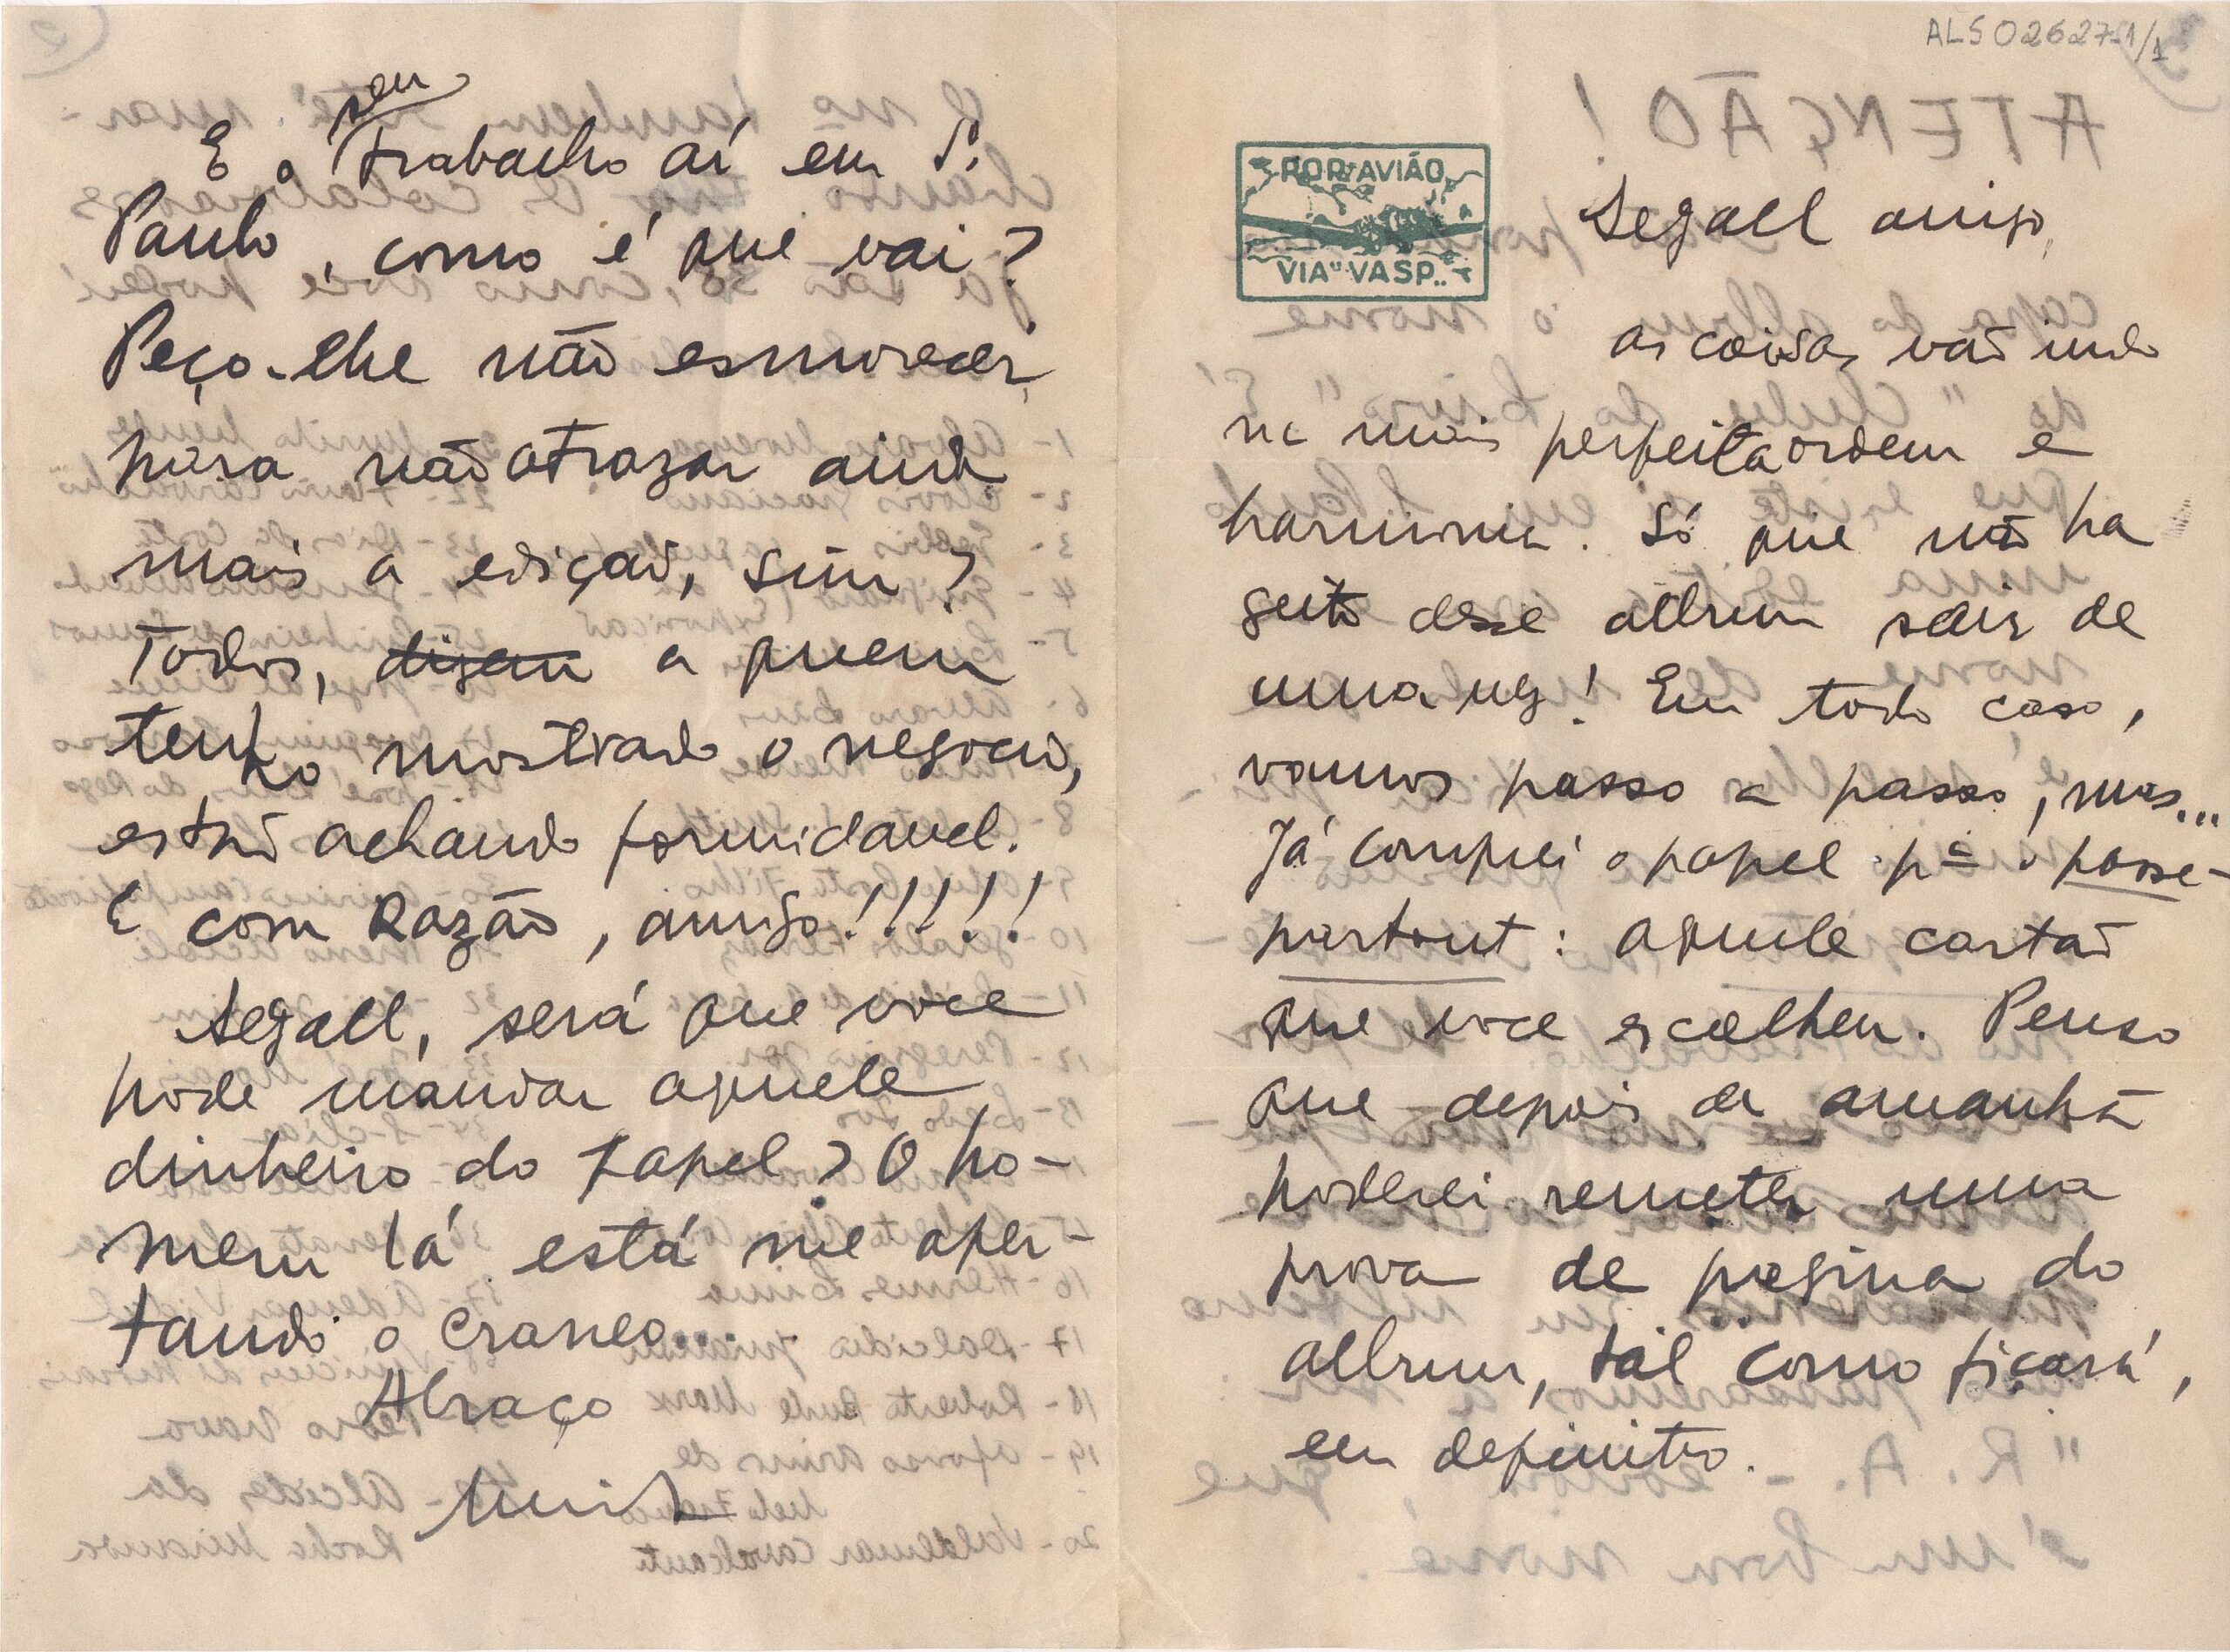 ALS 02627-1/1
POR AVIÃO
VIA VASP
Segall amigo,
as coisas vão indo
na mais perfeita ordem e
harmonia. Só que não ha
geito desse album sair de
uma vez! Em todo caso,
vamos passo a passo, mas...
Já comprei o papel pª o passe-
partout: aquele cartão
que voce escolheu. Penso
que depois de amanhã
poderei remeter uma
prova de pagina do
album, tal como ficará,
em definitivo.
E o seu trabalho aí em S.
Paulo, como é que vai?
Peço-lhe não esmorecer,
para não atrazar ainda
mais a edição, sim?
Todos, dizem a quem
tenho mostrado o negocio,
estão achando formidavel.
E com Razão, amigo!!!!!
Segall, será que voce
pode mandar aquele
dinheiro do papel? O ho-
mem lá está me aper-
tando o craneo...
Abraço
Murilo